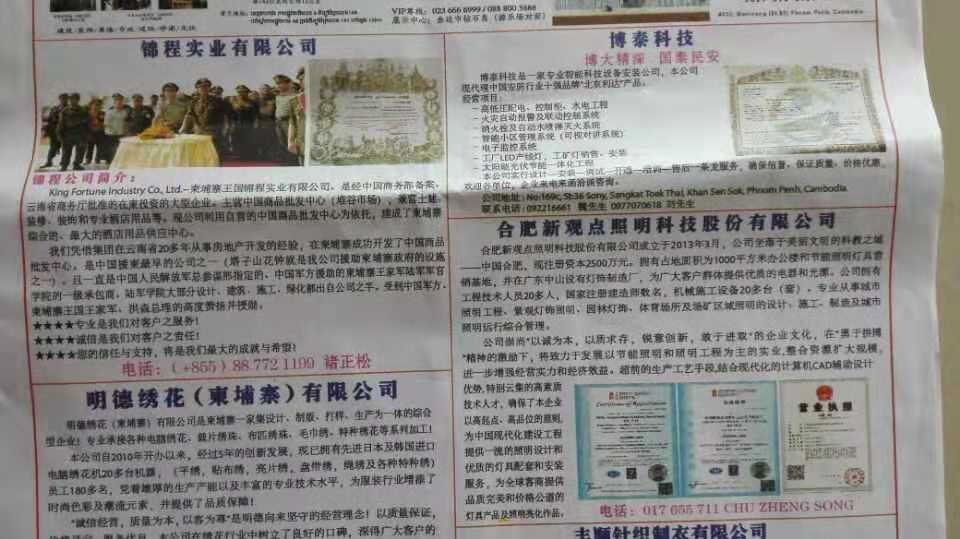 VIP专线: 023 666 8999 / 088 800 5888
锦程实业有限公司
锦程公司简介:
King Fortune Industry Co., Ltd.—柬埔寨王国锦程实业有限公司。是经中国商务部备案、
云南省商务厅批准的在柬投资的大型企业。主营中国商品批发中心（堆谷市场），兼营土建、
装修、装饰和专业酒店用品等。现公司利用自营的中国商品批发中心为依托，建成了柬埔寨
综合进、最大的酒店用品供应中心。
我们凭借集团在云南省20多年从事房地产开发的经验，在柬埔寨成功开发了中国商品
批发中心。是中国援柬最早的公司之一（塔子山花钟就是我公司援助柬埔寨政府的设施
之一）。且一直是中国人民解放军总参谋部指定的、中国军方援助的柬埔寨王家陆军军官
学院的一级承包商。陆军学院大部分设计、建筑、施工、绿化都出自公司之手。受到中国军方、
柬埔寨王国王家军、洪森总理的高度赞扬并授勋。
★★★★专业是我们对客户之服务!
★★★★诚信是我们对客户之责任!
★★★★您的信任与支持，将是我们最大的成就与希望!
电话: (+855) 88 772 1199 褚正松
明德绣花（柬埔寨）有限公司
明德绣花（柬埔寨）有限公司是柬埔寨一家集设计、制版、打样、生产为一体的综合
型企业! 专业承接各种电脑绣花、裁片绣珠、布匹绣珠、毛巾绣、特种绣花等系列加工!
本公司自2010年开办以来，经过5年的创新发展，现已拥有先进日本及韩国进口
电脑绣花机20多台机器，（平绣，贴布绣，亮片绣，盘带绣，绳绣及各种特种绣）
员工180多名，凭着雄厚的生产产能以及丰富的专业技术水平，为服装行业增添了
时尚色彩及潮流元素，并提供了品质保障!
"诚信经营，质量为本，以客为尊"是明德向来坚守的经营理念! 以质量保证，
本公司在绣花行业中树立了良好的口碑，深得广大客户的
博泰科技
博大精深 国泰民安
博泰科技是一家专业智能科技设备安装公司，本公司
现代理中国安防行业十强品牌"北京利达"产品。
经营项目:
－高低压配电、控制柜、水电工程
－火灾自动报警及联动控制系统
－消火栓及自动水喷淋灭火系统
－智能小区管理系统（可视对讲系统）
－电子监控系统
－工厂LED产线灯，工矿灯销售、安装
－太阳能光伏节能一体化工程
本公司实行设计—安装—调试—销售—售后一条龙服务，确保信誉、保证质量、价格优惠，
欢迎各单位，企业来电来函洽谈咨询。
公司地址: No:169c, St:36 Sony, Sangkat Toek Thai, Khan Sen Sok, Phnom Penh, Cambodia.
联系电话: 092216661 魏先生 0977070618 刘先生
合肥新观点照明科技股份有限公司
合肥新观点照明科技股份有限公司成立于2013年3月，公司坐落于美丽文明的科教之城
——中国合肥，现注册资本2500万元。拥有占地面积为1000平方米办公楼和节能照明灯具营
销基地，并在广东中山设有灯饰制造厂，为广大客户群体提供优质的电器和光源。公司拥有
工程技术人员20多人，国家注册建造师数名，机械施工设备20多台（套）。专业从事城市
照明工程、景观灯饰照明、园林灯饰、体育场所及场矿区域照明的设计、施工、制造及城市
照明运行综合管理。
公司崇尚"以诚为本，以质求存，锐意创新，敢于进取"的企业文化，在"勇于拼搏
"精神的激励下，将致力于发展以节能照明和照明工程为主的实业,整合资源扩大规模，
进一步增强经营实力和经济效益。超前的生产工艺手段,结合现代化的计算机CAD辅助设计
优势,特别云集的高素质
技术人才，确保了本企业
以高起点、高品位的愿则，
为中国现代化建设工程
提供一流的照明设计和
优质的灯具配套和安装
服务，为全球客商提供
品质完美和价格公道的
灯具产品及照明亮化作品。
营业执照
电话: 017 655 711 CHU ZHENG SONG
丰顺针织制衣有限公司